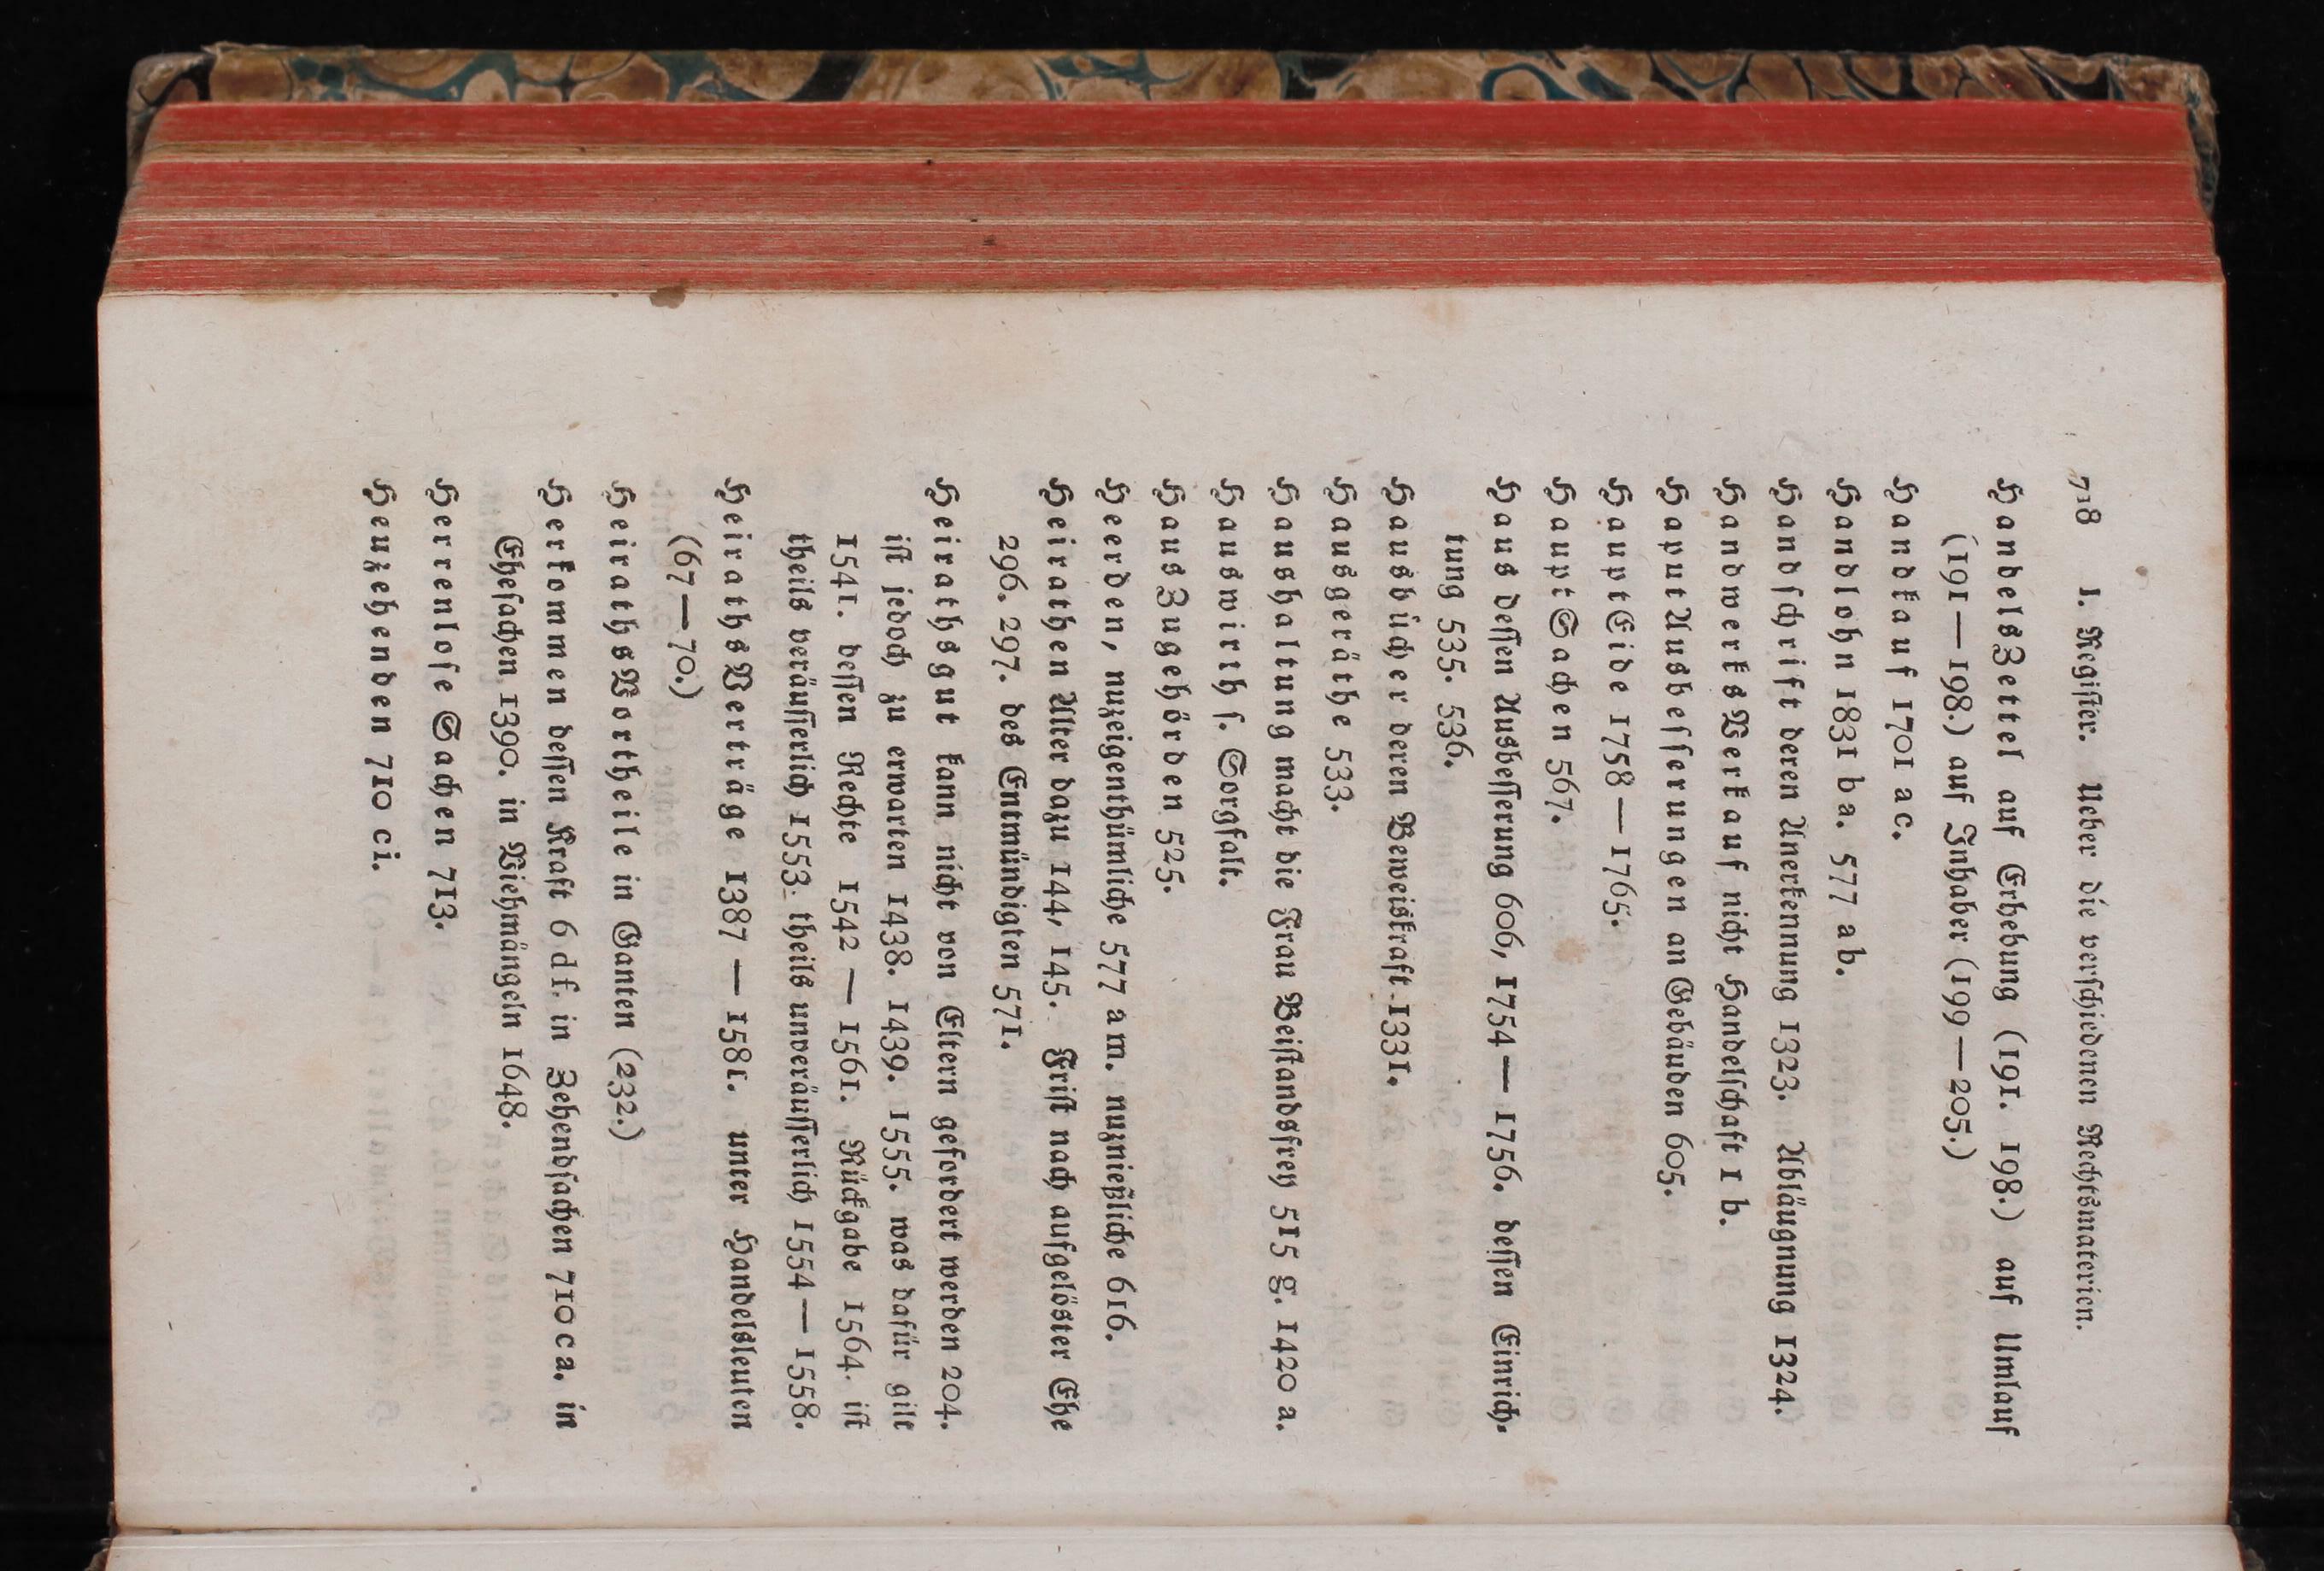 718 I. Register. Ueber die verschiedenen Rechtsmaterien.
HandelsZettel auf Erhebung (191. 198.) auf Umlauf
(191—198.) auf Inhaber (199—205.)
Handkauf 1701 ac.
Handlohn 1831 ba. 577 ab.
Handschrift deren Anerkennung 1323. Abläugnung 1324.
HandwerksVerkauf nicht Handelschaft 1 b.
HaputAusbesserungen an Gebäuden 605.
HauptEide 1758—1765.
HauptSachen 567.
Haus dessen Ausbesserung 606, 1754—1756. dessen Einrich-
tung 535. 536.
Hausbücher deren Beweiskraft 1331.
Hausgeräthe 533.
Haushaltung macht die Frau Beistandsfrey 515 g. 1420 a.
Hauswirth s. Sorgfalt.
HausZugehörden 525.
Heerden, nuzeigenthümliche 577 am. nuznießliche 616.
Heirathen Alter dazu 144, 145. Frist nach aufgelöster Ehe
296. 297. des Entmündigten 571.
Heirathsgut kann nicht von Eltern gefordert werden 204.
ist jedoch zu erwarten 1438. 1439. 1555. was dafür gilt
1541. dessen Rechte 1542—1561. Rückgabe 1564. ist
theils veräusserlich 1553. theils unveräusserlich 1554—1558.
HeirathsVerträge 1387—1581. unter Handelsleuten
(67—70.)
HeirathsVortheile in Ganten (232.)
Herkommen dessen Kraft 6 df. in Zehendsachen 710 ca. in
Ehesachen 1390. in Viehmängeln 1648.
Herrenlose Sachen 713.
Heuzehenden 710 ci.